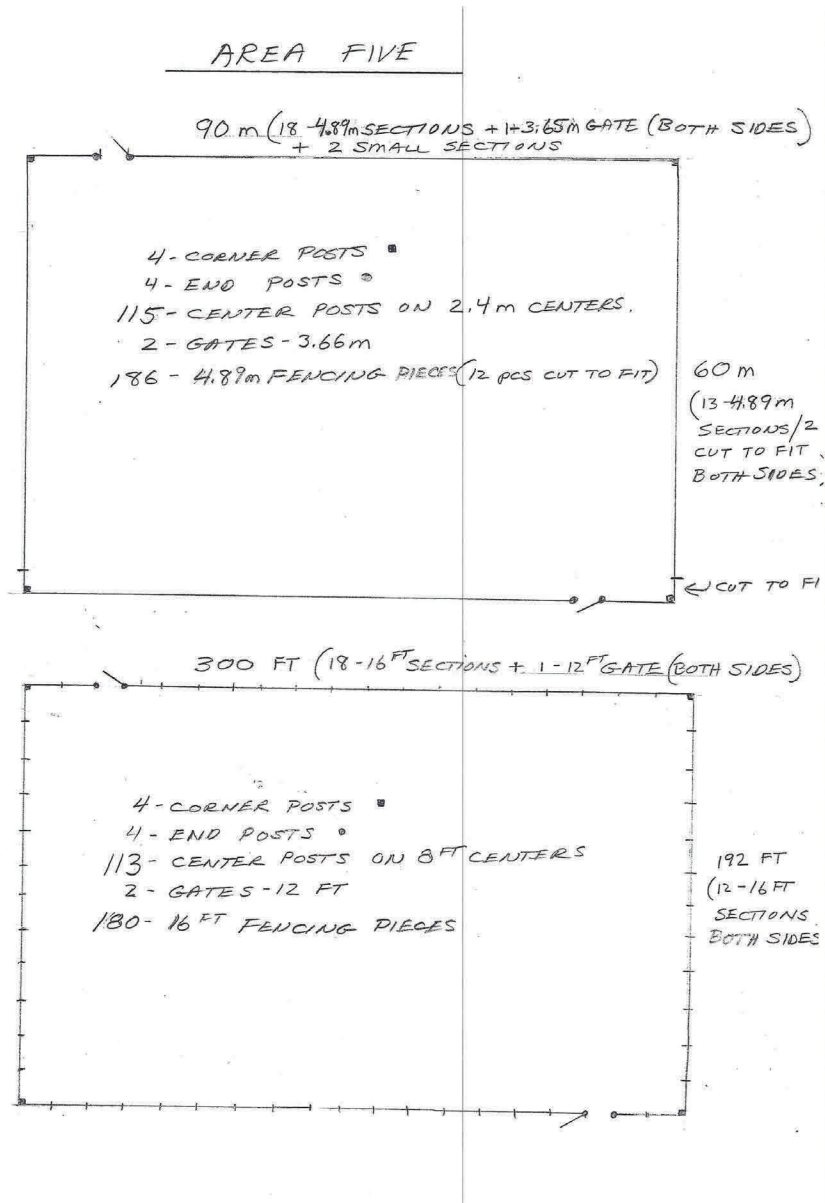 AREA FIVE
90 m (18-4.89m SECTIONS + 1-3.65m GATE (BOTH SIDES)
+ 2 SMALL SECTIONS
4- CORNER POSTS
4- END POSTS
115- CENTER POSTS ON 2.4m CENTERS.
2- GATES- 3.66m
186- 4.89m FENCING PIECES (12 pcs CUT TO FIT)
60 m
(13-4.89m
SECTIONS/2
CUT TO FIT
BOTH SIDES
CUT TO FI
300 FT (18-16 FT SECTIONS + 1-12 FT GATE (BOTH SIDES)
4- CORNER POSTS
4- END POSTS
113- CENTER POSTS ON 8 FT CENTERS
2- GATES-12 FT
180- 16 FT FENCING PIECES
192 FT
(12-16 FT
SECTIONS
BOTH SIDES